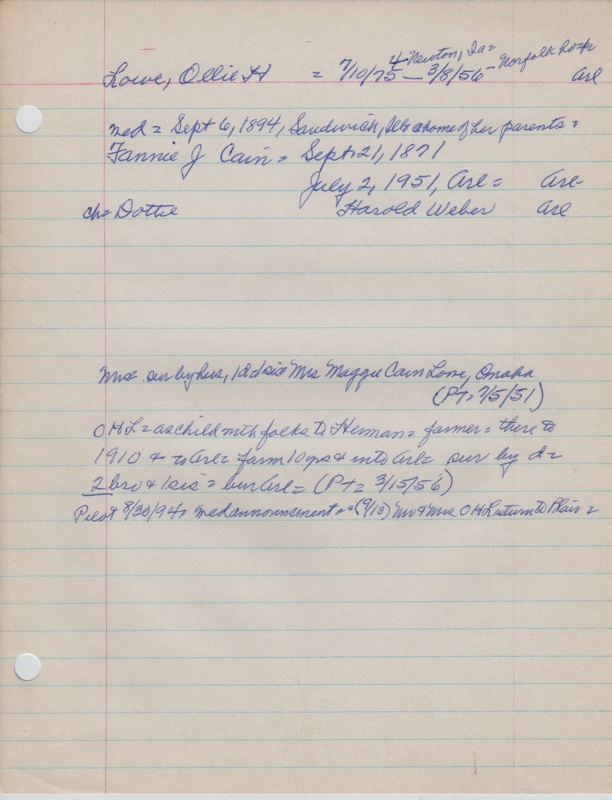 4 Newton, Ia = Norfolk hosp
Lowe, Ollie H = 7/10/75 - 3/8/56 - Arl
med = Sept 6, 1894, Sandwich, Ills @ home of her parents =
Fannie J Cain = Sept 21, 1871
July 2, 1951, Arl = Arl
ch = Dottie Harold Weber Arl
Mrs = sur by hus, 1 d & sis = Mrs Maggie Cain Lowe, Omaha
(PT = 7/5/51)
OHL = as child mth folks to Herman = farmer = there to
1910 & to Arl = farm 10 yrs & into Arl = sur by d =
2 bro & 1 sis = bur Arl = (PT = 3/15/56)
Pilot 8/30/94 = med announcement = (9/13) Mr & Mrs OHL return to Blair =